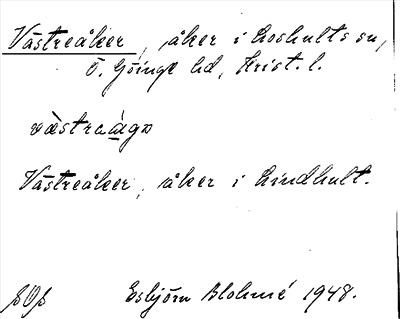 Västreåker, åker i Loshults sn,
Ö. Göinge hd, Krist. l.
væstraågə
Västreåker, åker i Lindhult.
Esbjörn Blohmé 1948.